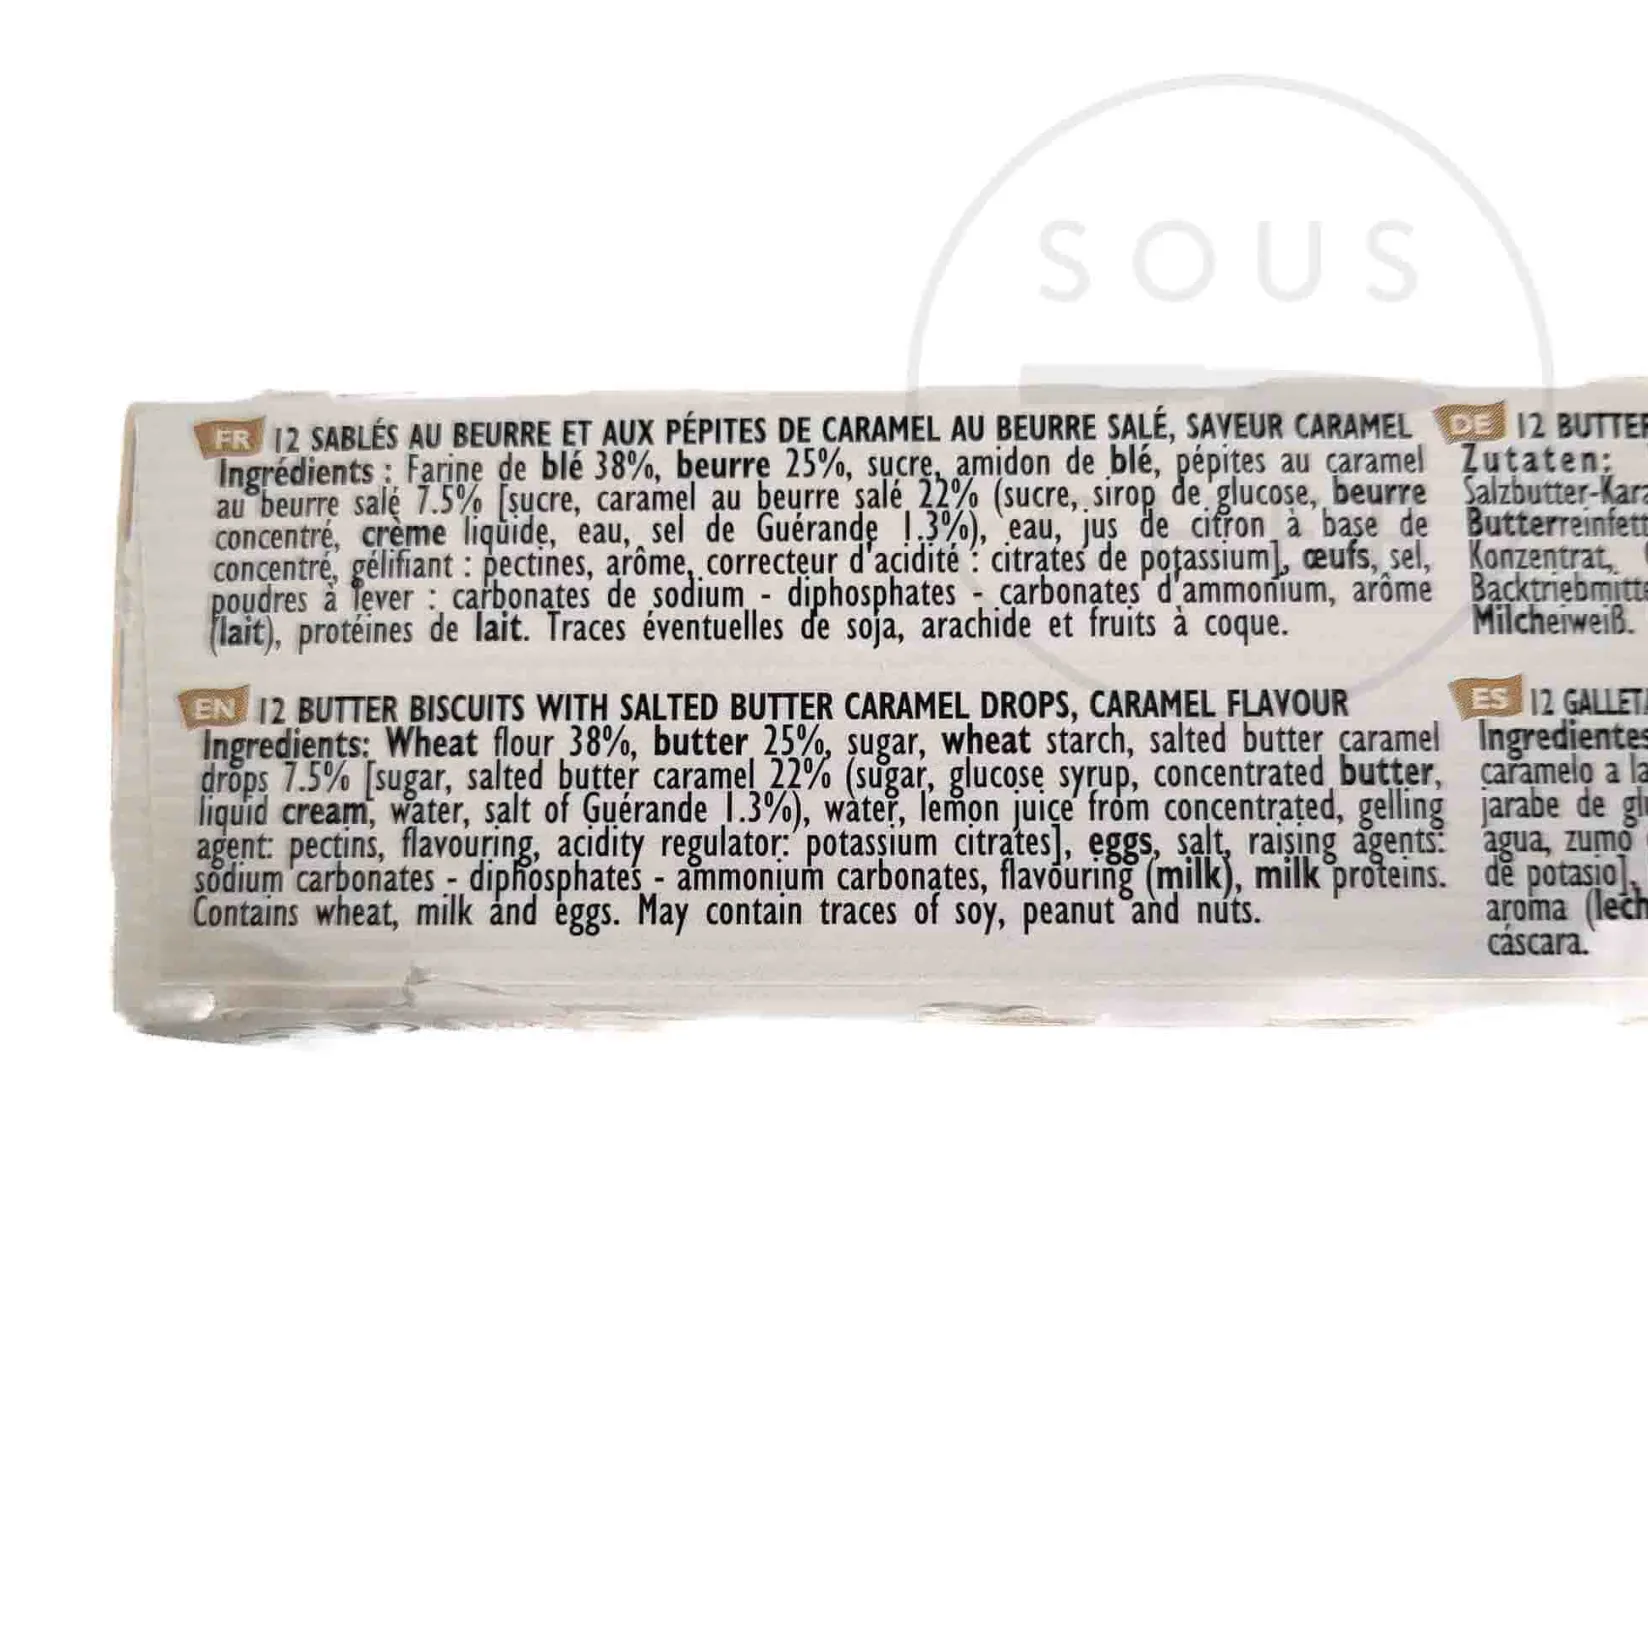 SOUS
FR 12 SABLÉS AU BEURRE ET AUX PÉPITES DE CARAMEL AU BEURRE SALÉ, SAVEUR CARAMEL
Ingrédients : Farine de blé 38%, beurre 25%, sucre, amidon de blé, pépites au caramel
au beurre salé 7.5% [sucre, caramel au beurre salé 22% (sucre, sirop de glucose, beurre
concentré, crème liquide, eau, sel de Guérande 1.3%), eau, jus de citron à base de
concentré, gélifiant : pectines, arôme, correcteur d'acidité : citrates de potassium], œufs, sel,
poudres à lever : carbonates de sodium - diphosphates - carbonates d'ammonium, arôme
(lait), protéines de lait. Traces éventuelles de soja, arachide et fruits à coque.
EN 12 BUTTER BISCUITS WITH SALTED BUTTER CARAMEL DROPS, CARAMEL FLAVOUR
Ingredients: Wheat flour 38%, butter 25%, sugar, wheat starch, salted butter caramel
drops 7.5% [sugar, salted butter caramel 22% (sugar, glucose syrup, concentrated butter,
liquid cream, water, salt of Guérande 1.3%), water, lemon juice from concentrated, gelling
agent: pectins, flavouring, acidity regulator: potassium citrates], eggs, salt, raising agents:
sodium carbonates - diphosphates - ammonium carbonates, flavouring (milk), milk proteins.
Contains wheat, milk and eggs. May contain traces of soy, peanut and nuts.
DE 12 BUTTER
Zutaten:
Salzbutter-Kara
Butterreinfett
Konzentrat,
Backtriebmitte
Milcheiweiß.
ES 12 GALLETA
Ingredientes
caramelo a la
jarabe de gl
agua, zumo
de potasio],
aroma (lech
cáscara.